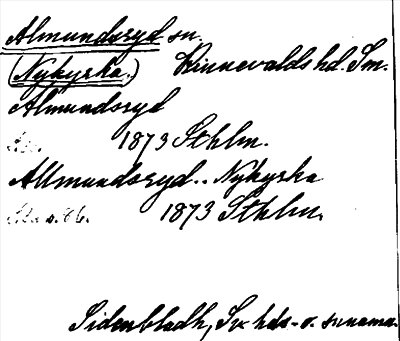 Almundsryd sn.
(Nykyrka.) Kinnevalds hd. Sm.
Almundsryd
1873 Sthlm.
Allmundsryd.. Nykyrka
1873 Sthlm.
Sidenbladh, Sv. hds- o. sunama.